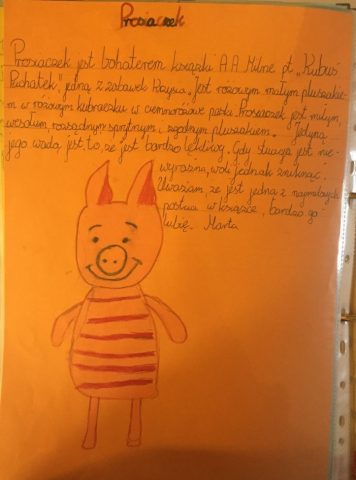 Prosiaczek
Prosiaczek jest bohaterem książki A.A. Milne pt. „Kubuś
Puchatek", jedną z zabawek Krzysia. Jest różowym małym pluszakie-
m w różowym kubraczku w ciemnoróżowe paski. Prosiaczek jest miłym,
wesołym, rozsądnym, sprytnym i zgodnym pluszakiem. Jedyną
jego wadą jest to, że jest bardzo lękliwy. Gdy sytuacja jest nie-
wyraźna, woli jednak zniknąć.
Uważam, że jest jedną z najmilszych
postaci w książce, bardzo go
lubię. Marta